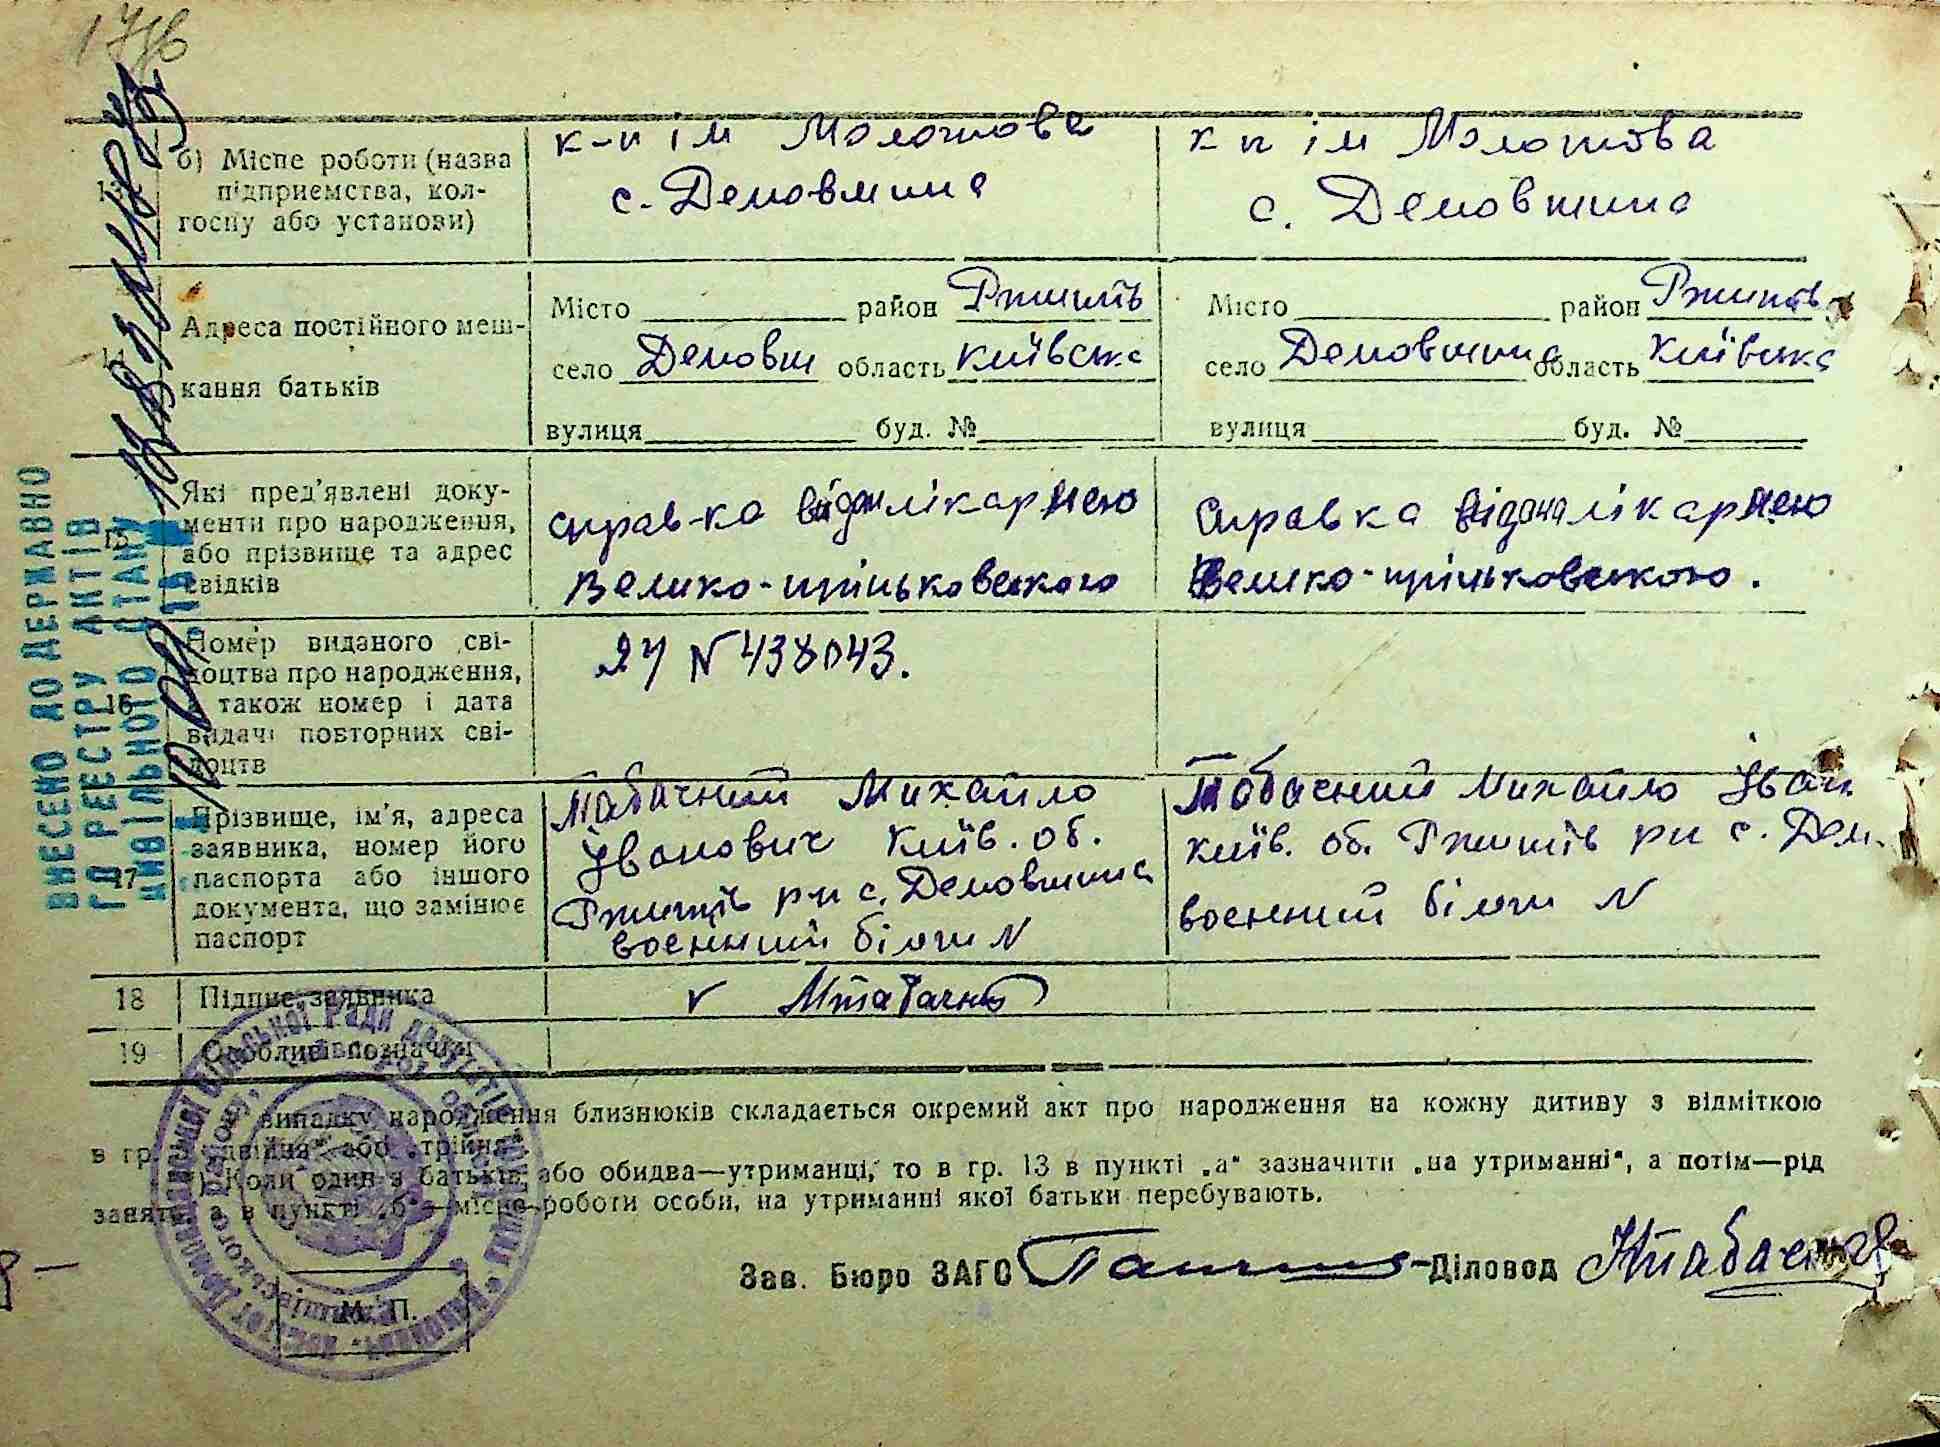 б) Місце роботи (назва підприємства, колгоспу або установи)
к-п ім Молотова
с. Демовщина
к п ім Молотова
с. Демовщина
Адреса постійного мешкання батьків
Місто район Ржищів
село Демовщ область Київська
вулиця буд. №
Місто район Ржищів
село Демовщина область Київська
вулиця буд. №
15
Які пред'явлені документи про народження, або прізвище та адрес свідків
справка видан лікарнею
Велико-прицьковського
Справка видана лікарнею
Велико-прицьковською.
16
Номер виданого свідоцтва про народження, а також номер і дата видачі повторних свідоцтв
ЯЧ N 438043.
17
Прізвище, ім'я, адреса заявника, номер його паспорта або іншого документа, що замінює паспорт
Табачний Михайло
Іванович Київ. об.
Ржищів рн с. Демовщина
воєнний білет N
Табачний Михайло Іван
Київ. об. Ржищів рн с. Дем.
воєнний білет N
18 Підпис заявника
v МТабачний
19 Особливі позначки
випадку народження близнюків складається окремий акт про народження на кожну дитину з відміткою
в гр. „двійня" або „трійня".
) Коли один з батьків, або обидва—утриманці, то в гр. 13 в пункті „а" зазначити „на утриманні", а потім—рід
занять, а в пункті „б"—місце роботи особи, на утриманні якої батьки перебувають.
Зав. Бюро ЗАГС Діловод
М. П.
ВНЕСЕНО ДО ДЕРЖАВНО
ГО РЕЄСТРУ АКТІВ
ЦИВІЛЬНОГО СТАНУ